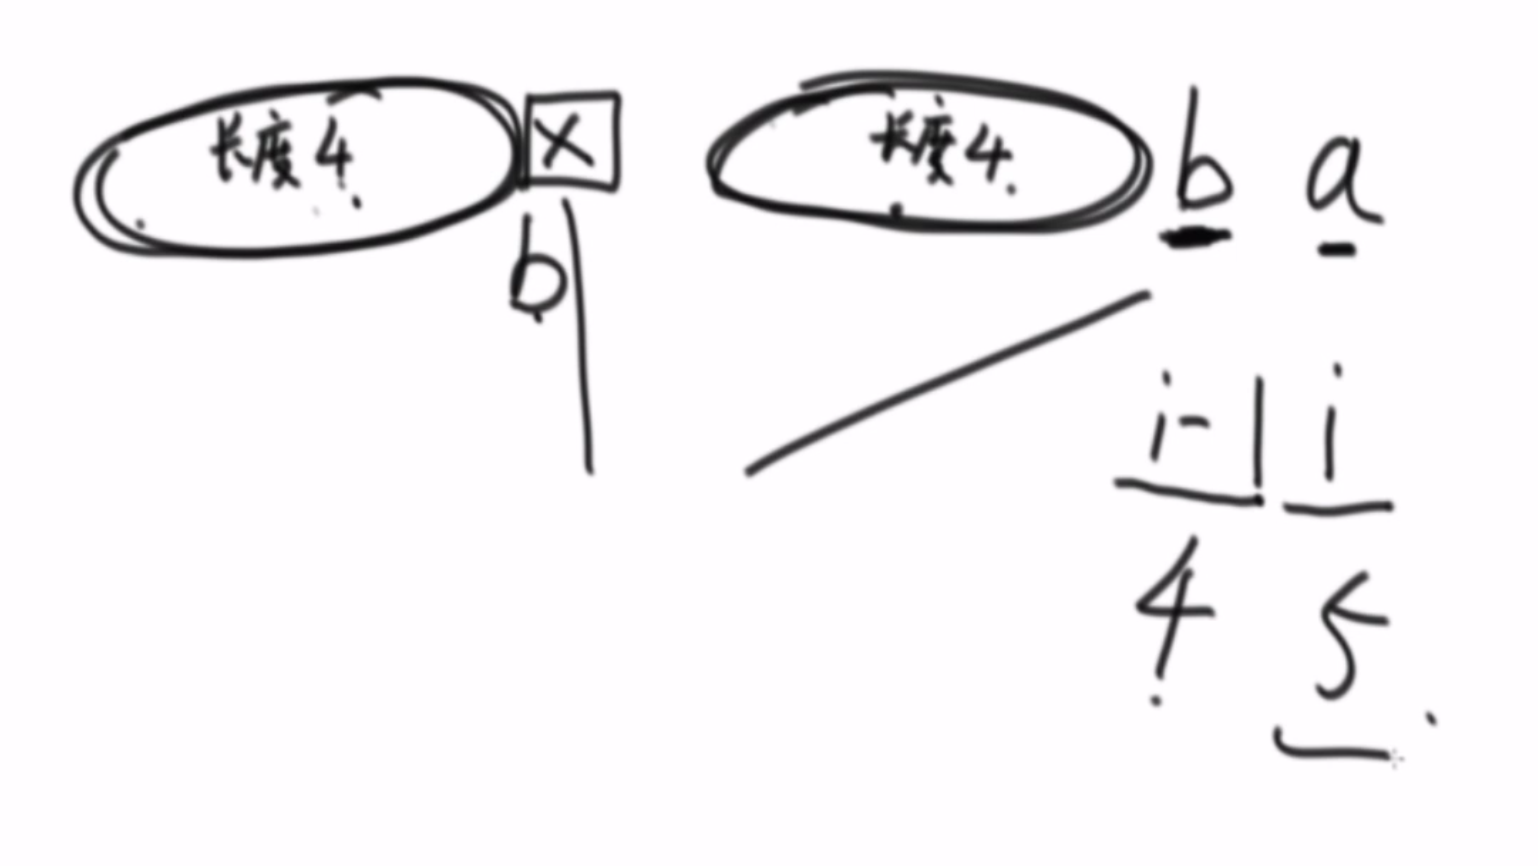 长度4 X 长度4 b a
b
i-1 i
4 5